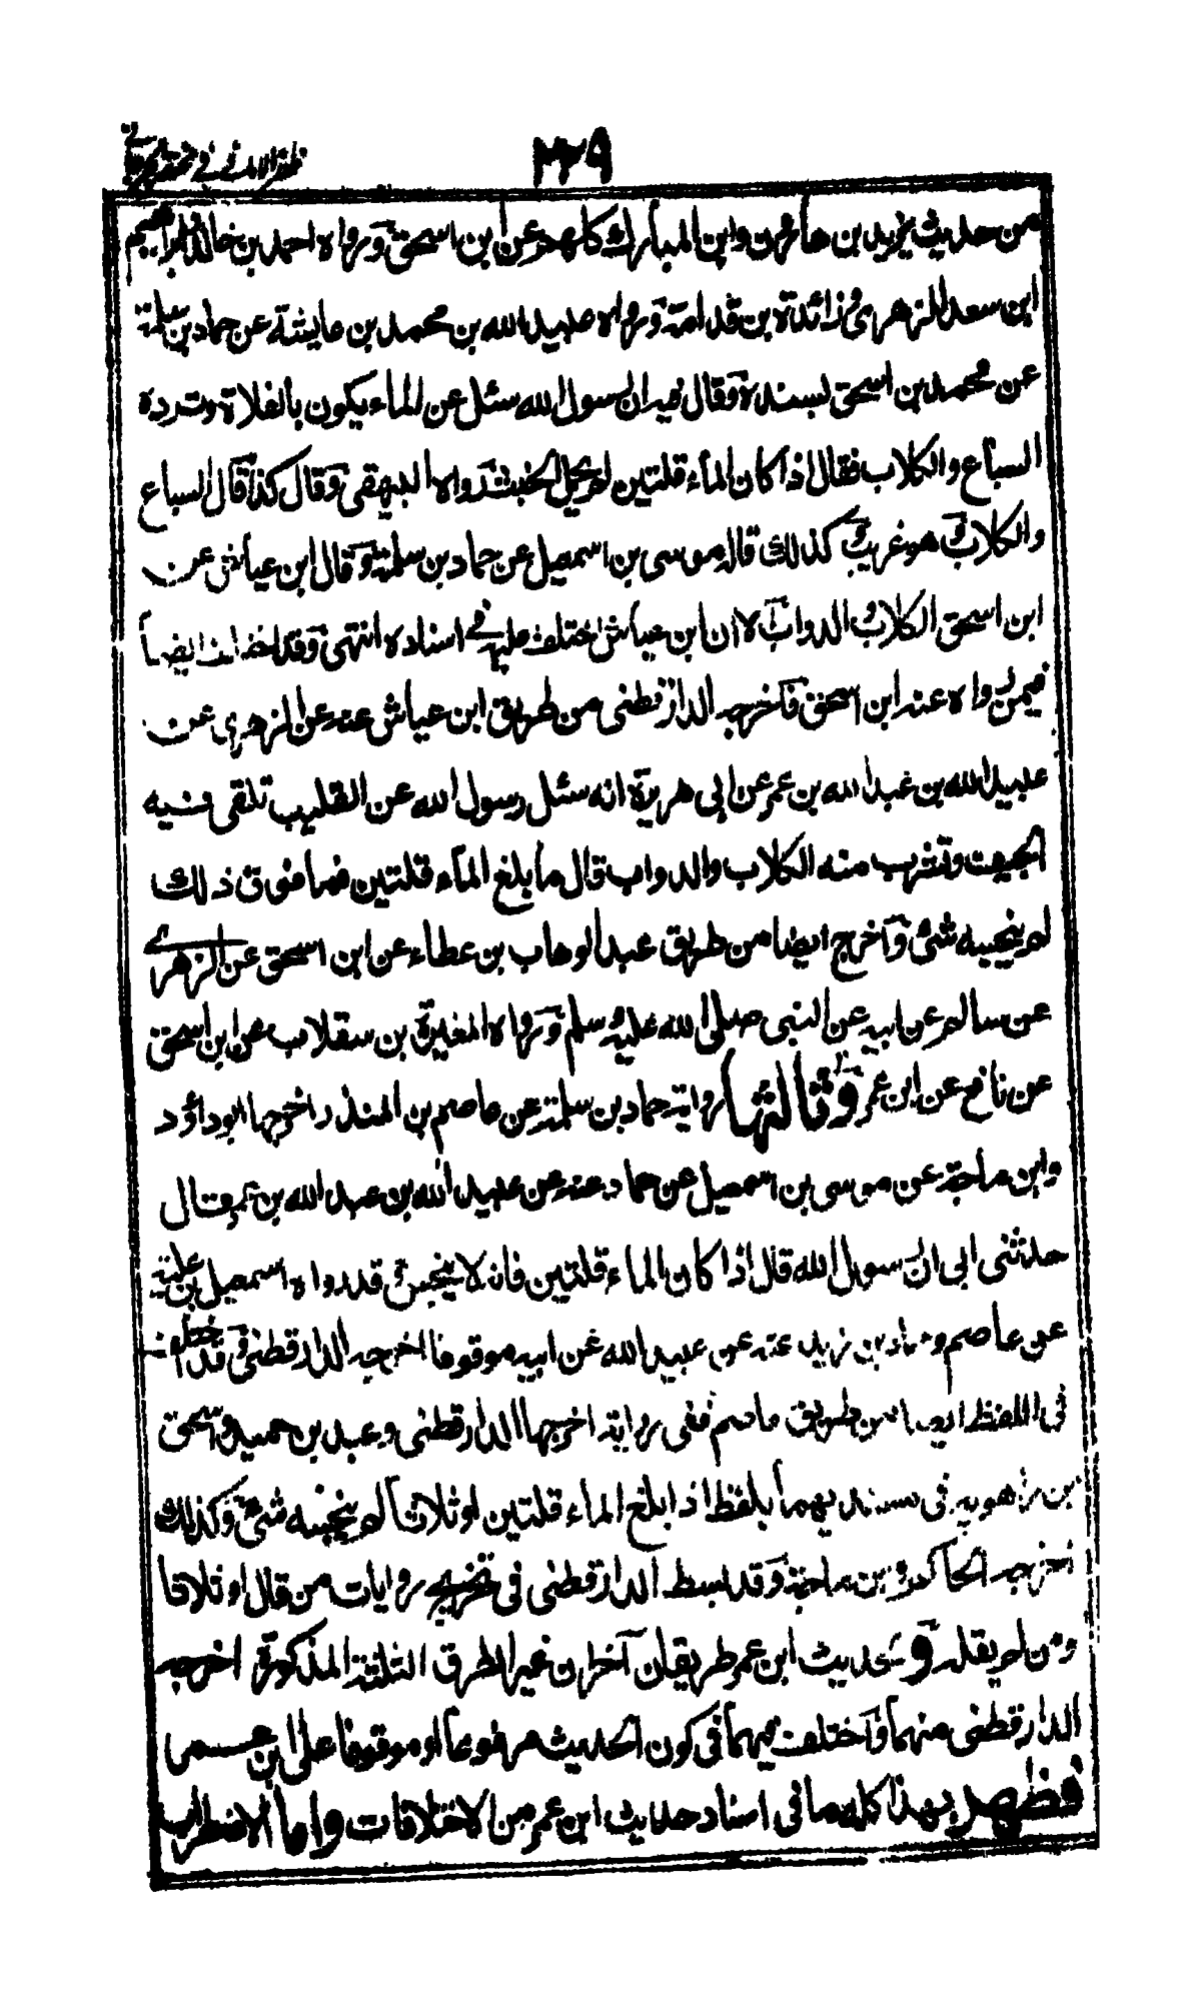 ٢٢٩
ظفر الامانی فی مختصر الجرجانی
من حدیث یزید بن هارون وابن المبارک کلهم عن ابن اسحٰق ورواه احمد بن خالد وابراهیم
ابن سعد الزهری وزائدة بن قدامة ورواه عبید الله بن محمد بن عایشة عن حماد بن سلمة
عن محمد بن اسحٰق بسنده وقال فیه ان رسول الله سئل عن الماء یکون بالفلاة وترده
السباع والکلاب فقال اذا کان الماء قلتین لم یحمل الخبث رواه البیهقی وقال کذا قال السباع
والکلاب هو غریب کذلک قاله موسی بن اسمعیل عن حماد بن سلمة وقال ابن عیاش عن
ابن اسحٰق الکلاب والدواب الا ان ابن عیاش اختلف علیه فی اسناده انتهی وقد اختلف ایضاً
فیمن رواه عنه ابن اسحٰق فاخرجه الدارقطنی من طریق ابن عیاش عنه عن الزهری عن
عبید الله بن عبد الله بن عمر عن ابی هریرة انه سئل رسول الله عن القلیب تلقی فیه
الجیف وتشرب منه الکلاب والدواب قال ما بلغ الماء قلتین فما فوق ذلک
لم ینجسه شئ واخرج ایضا من طریق عبد الوهاب بن عطاء عن ابن اسحٰق عن الزهری
عن سالم عن ابیه عن النبی صلی الله علیه وسلم ورواه المغیرة بن سقلاب عن ابن اسحٰق
عن نافع عن ابن عمر وثالثها روایة حماد بن سلمة عن عاصم بن المنذر اخرجها ابوداؤد
وابن ماجة عن موسی بن اسمعیل عن حماد عنه عن عبید الله بن عبد الله بن عمر قال
حدثنی ابی ان رسول الله قال اذا کان الماء قلتین فانه لا ینجس وقد رواه اسمعیل بن علیة
عن عاصم وحماد بن زید عنه عن عبید الله عن ابیه موقوفا اخرجه الدارقطنی وقد اختلف
فی اللفظ ایضا من طریق عاصم ففی روایة اخرجها الدارقطنی وعبد بن حمید واسحٰق
بن راهویه فی مسندیهما بلفظ اذا بلغ الماء قلتین او ثلاثا لم ینجسه شئ وکذلک
اخرجه الحاکم وابن ماجة وقد بسط الدارقطنی فی تخریج روایات من قال او ثلاثا
ومن لم یقله ولحدیث ابن عمر طریقان آخران غیر الطرق الثلثة المذکورة اخرجه
الدارقطنی منهما واختلف فیهما فی کون الحدیث مرفوعا او موقوفا علی ابن عمر
فظهر بهذا کله ما فی اسناد حدیث ابن عمر من الاختلافات واما الاضطراب